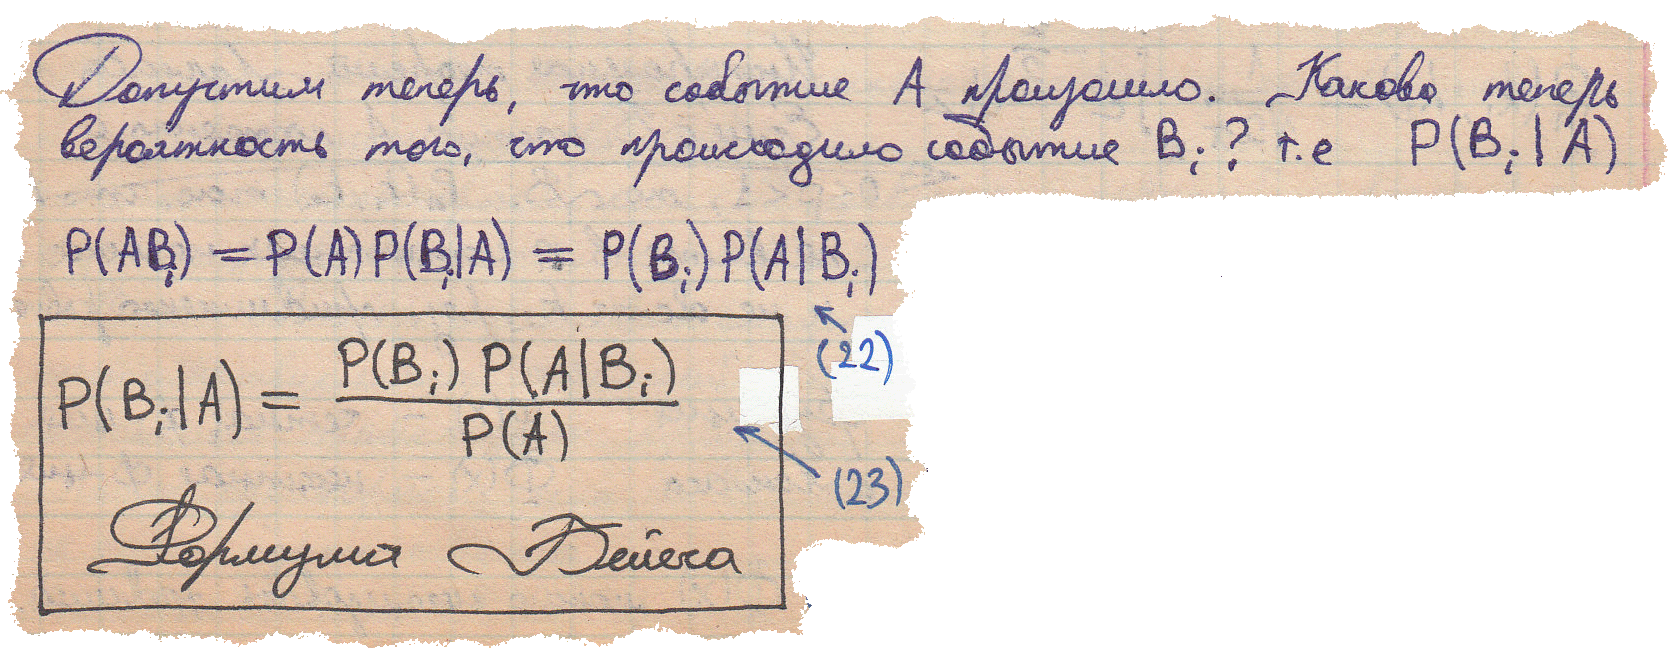 Допустим теперь, что событие A произошло. Каково теперь
вероятность того, что происходило событие Bi? т.е P(Bi|A)
P(ABi) = P(A)P(Bi|A) = P(Bi)P(A|Bi)
(22)
P(Bi|A) = P(Bi) P(A|Bi) / P(A)
(23)
Формула Бейеса